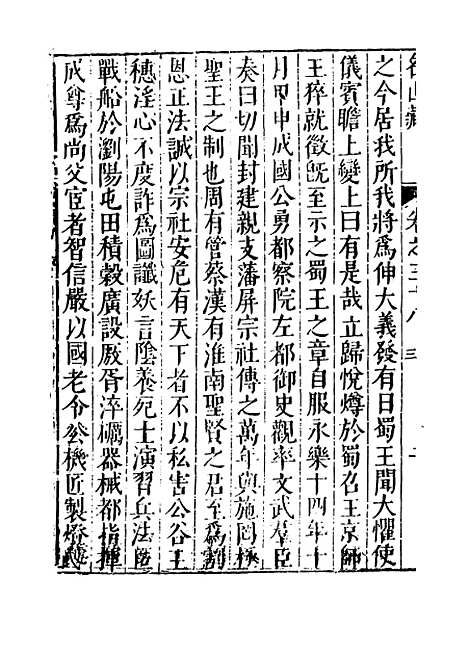 名山藏 卷之三十八 三
之今居我所我將爲伸大義發有日蜀王聞大懼使
儀賓瞻上變上曰有是哉立歸悅燇於蜀召王京師
王猝就徵旣至示之蜀王之章自服永樂十四年十
月甲申成國公勇都察院左都御史觀率文武羣臣
奏曰切聞封建親支藩屏宗社傳之萬年與施罔極
聖王之制也周有管蔡漢有淮南聖賢之君至爲割
恩正法誠以宗社安危有天下者不以私害公谷王
穗淫心不度詐爲圖讖妖言陰養死士演習兵法造
戰船於瀏陽屯田積穀廣設厫胥淬礪器械都指揮
成尊爲尚父宦者智信嚴以國老令公機匠製燈